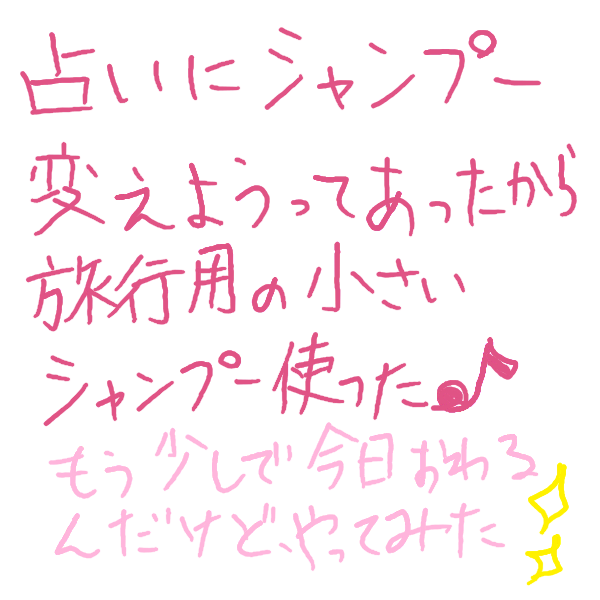 占いにシャンプー
変えようってあったから
旅行用の小さい
シャンプー使った♪
もう少しで今日おわる
んだけど、やってみた